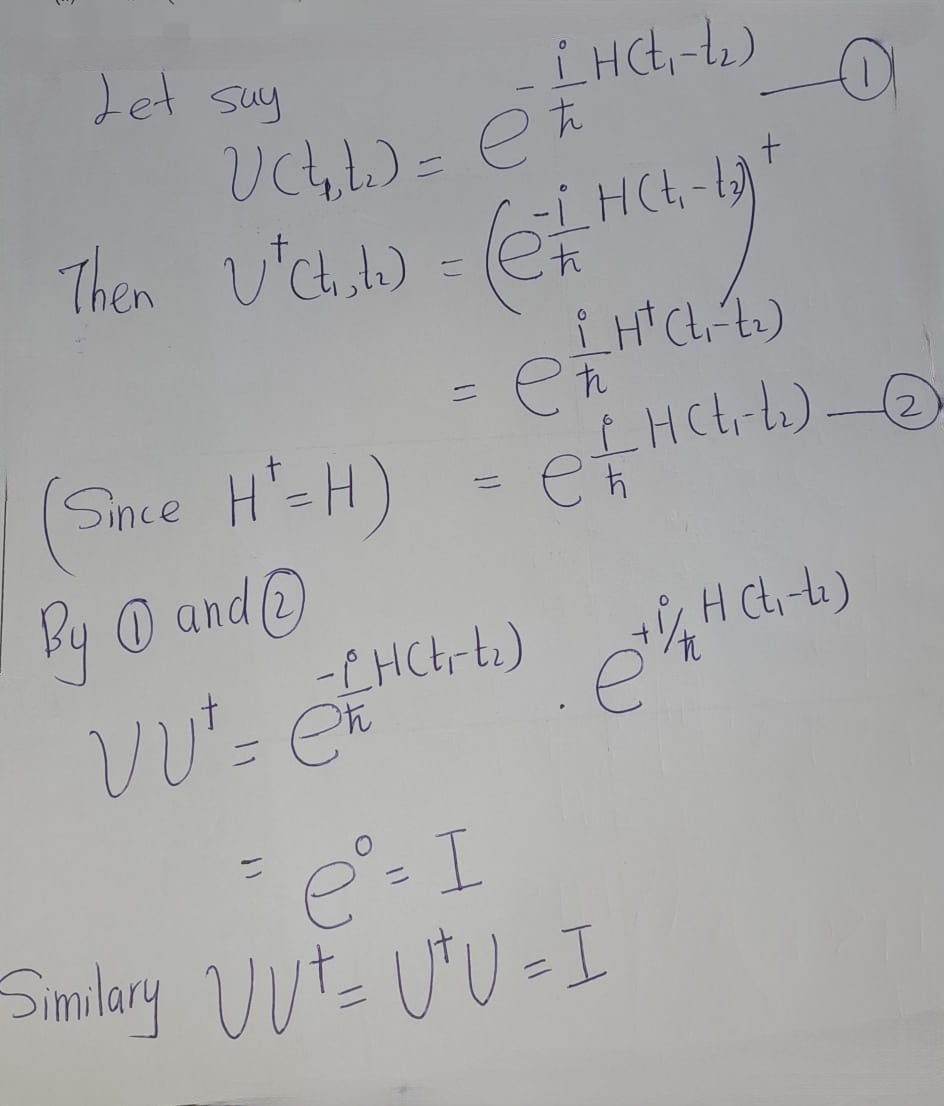 Let say
U(t₁,t₂) = e^{-i/ħ H(t₁-t₂)} —①
Then U†(t₁,t₂) = (e^{-i/ħ H(t₁-t₂)})†
= e^{i/ħ H†(t₁-t₂)}
(Since H†=H) = e^{i/ħ H(t₁-t₂)} —②
By ① and ②
UU† = e^{-i/ħ H(t₁-t₂)} . e^{+i/ħ H(t₁-t₂)}
= e⁰ = I
Similary UU† = U†U = I